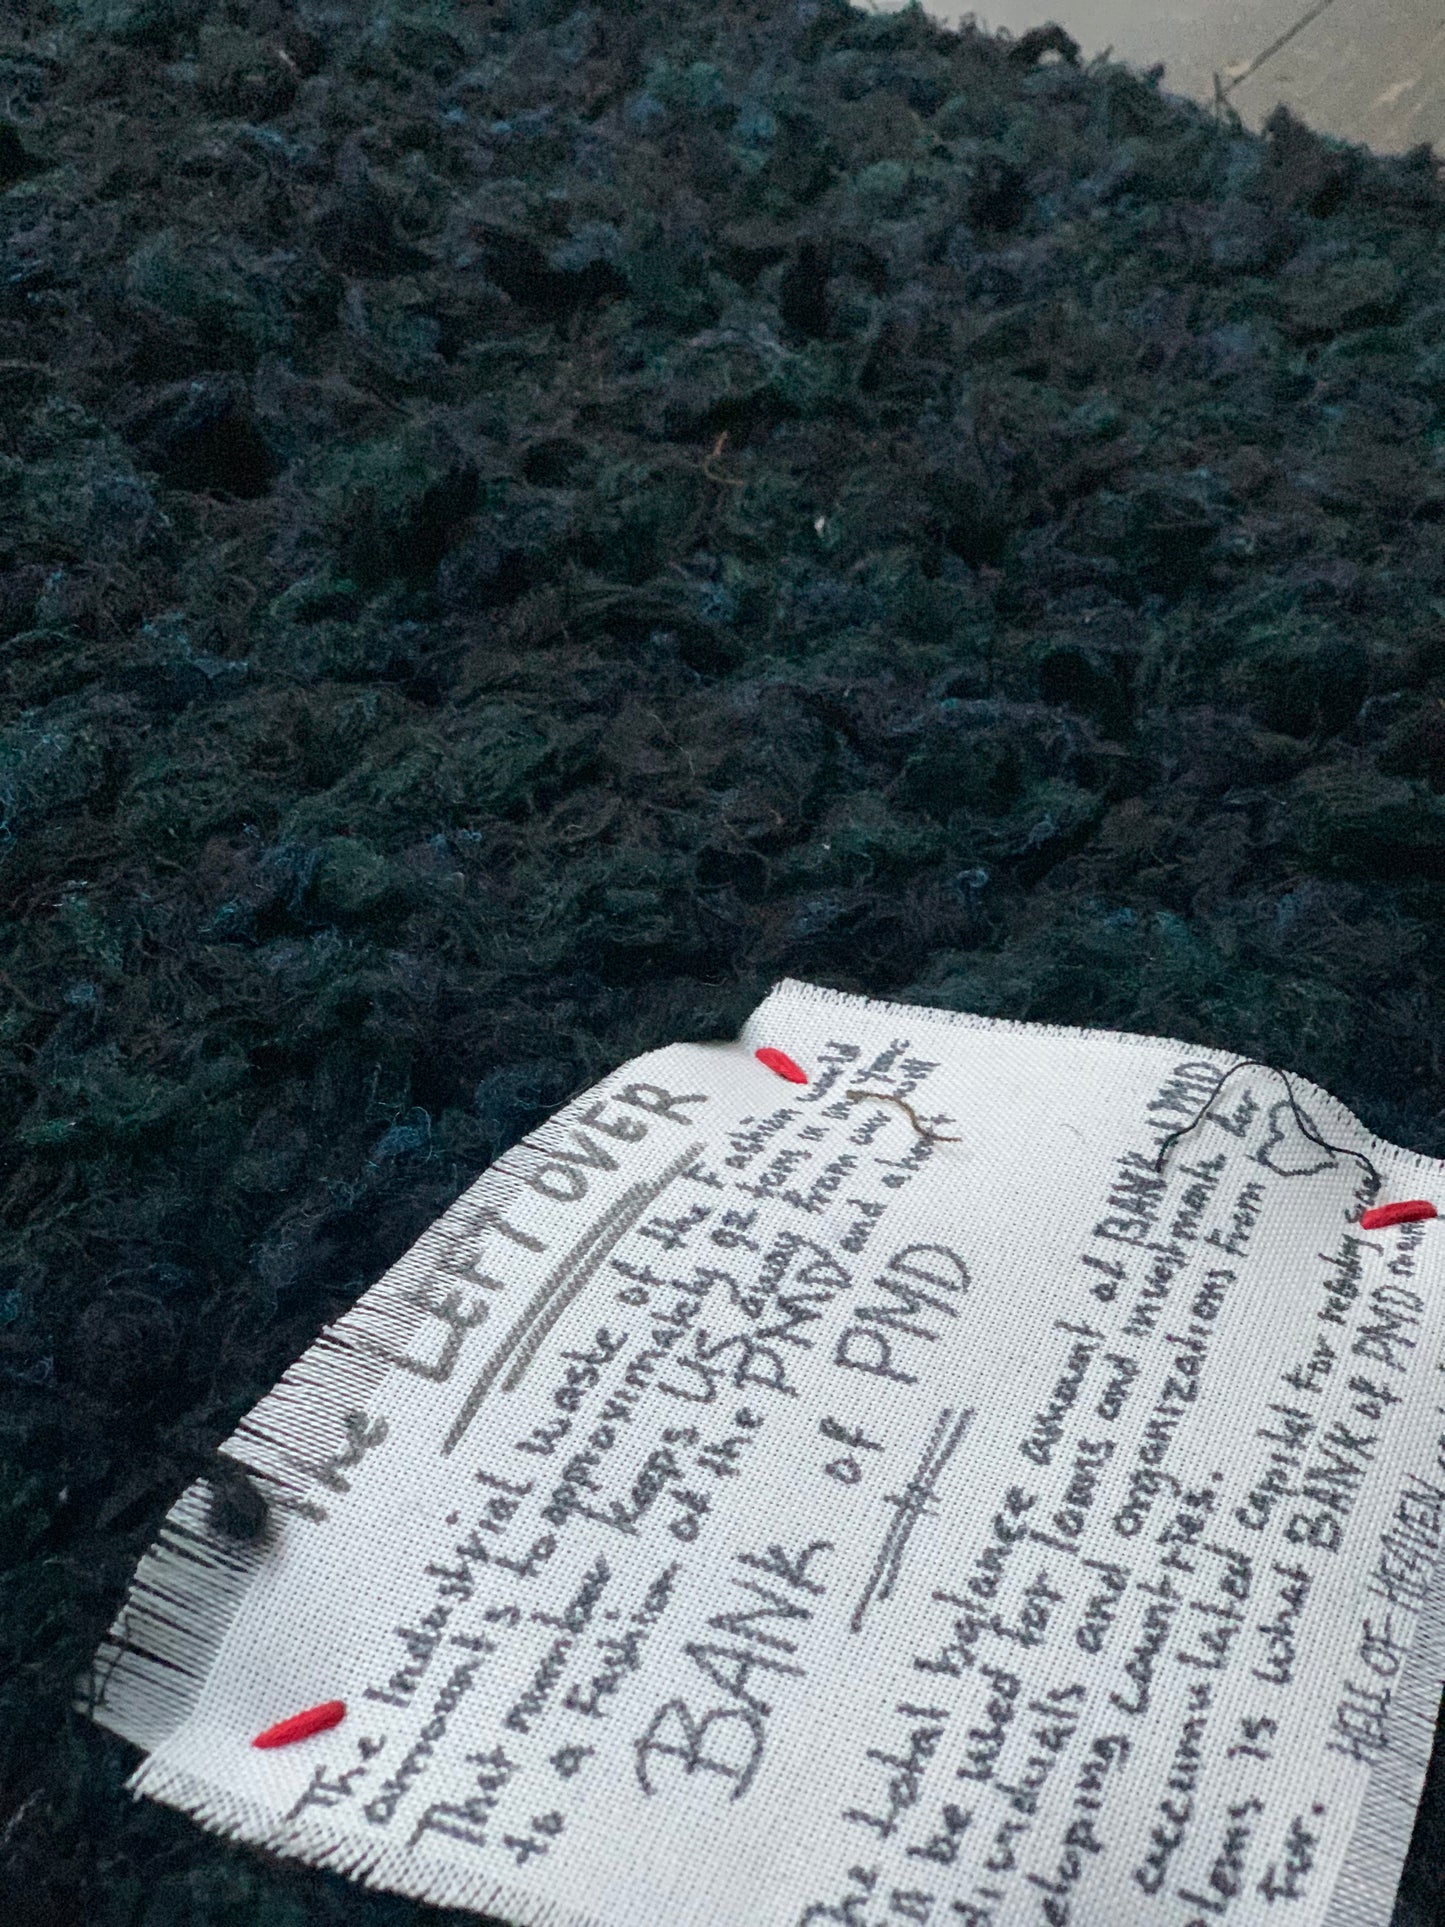 The LEFT OVER
The Industrial waste of the Fashion world
amount's to approximately 92 tons in one
That number keeps US away from our
to a Fashion of the PMD and a
BANK of PMD
The total balance amount of BANK of PMD
be used for loans and investments
individuals and organizations from
countries.
accumulated capital for
is what BANK of PMD
For.
HELL OF HEAVEN